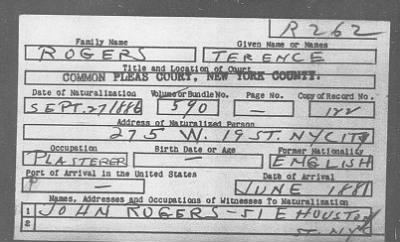 R262
Family Name Given Name or Names
ROGERS TERENCE
Title and Location of Court
COMMON PLEAS COURT, NEW YORK COUNTY.
Date of Naturalization Volume or Bundle No. Page No. Copy of Record No.
SEPT. 27 1886 590 — 122
Address of Naturalized Person
275 W. 19 ST. NYCITY
Occupation Birth Date or Age Former Nationality
PLASTERER — ENGLISH
Port of Arrival in the United States Date of Arrival
— JUNE 1881
Names, Addresses and Occupations of Witnesses To Naturalization
1 JOHN ROGERS - 51 E HOUSTON
2 ST. NYC